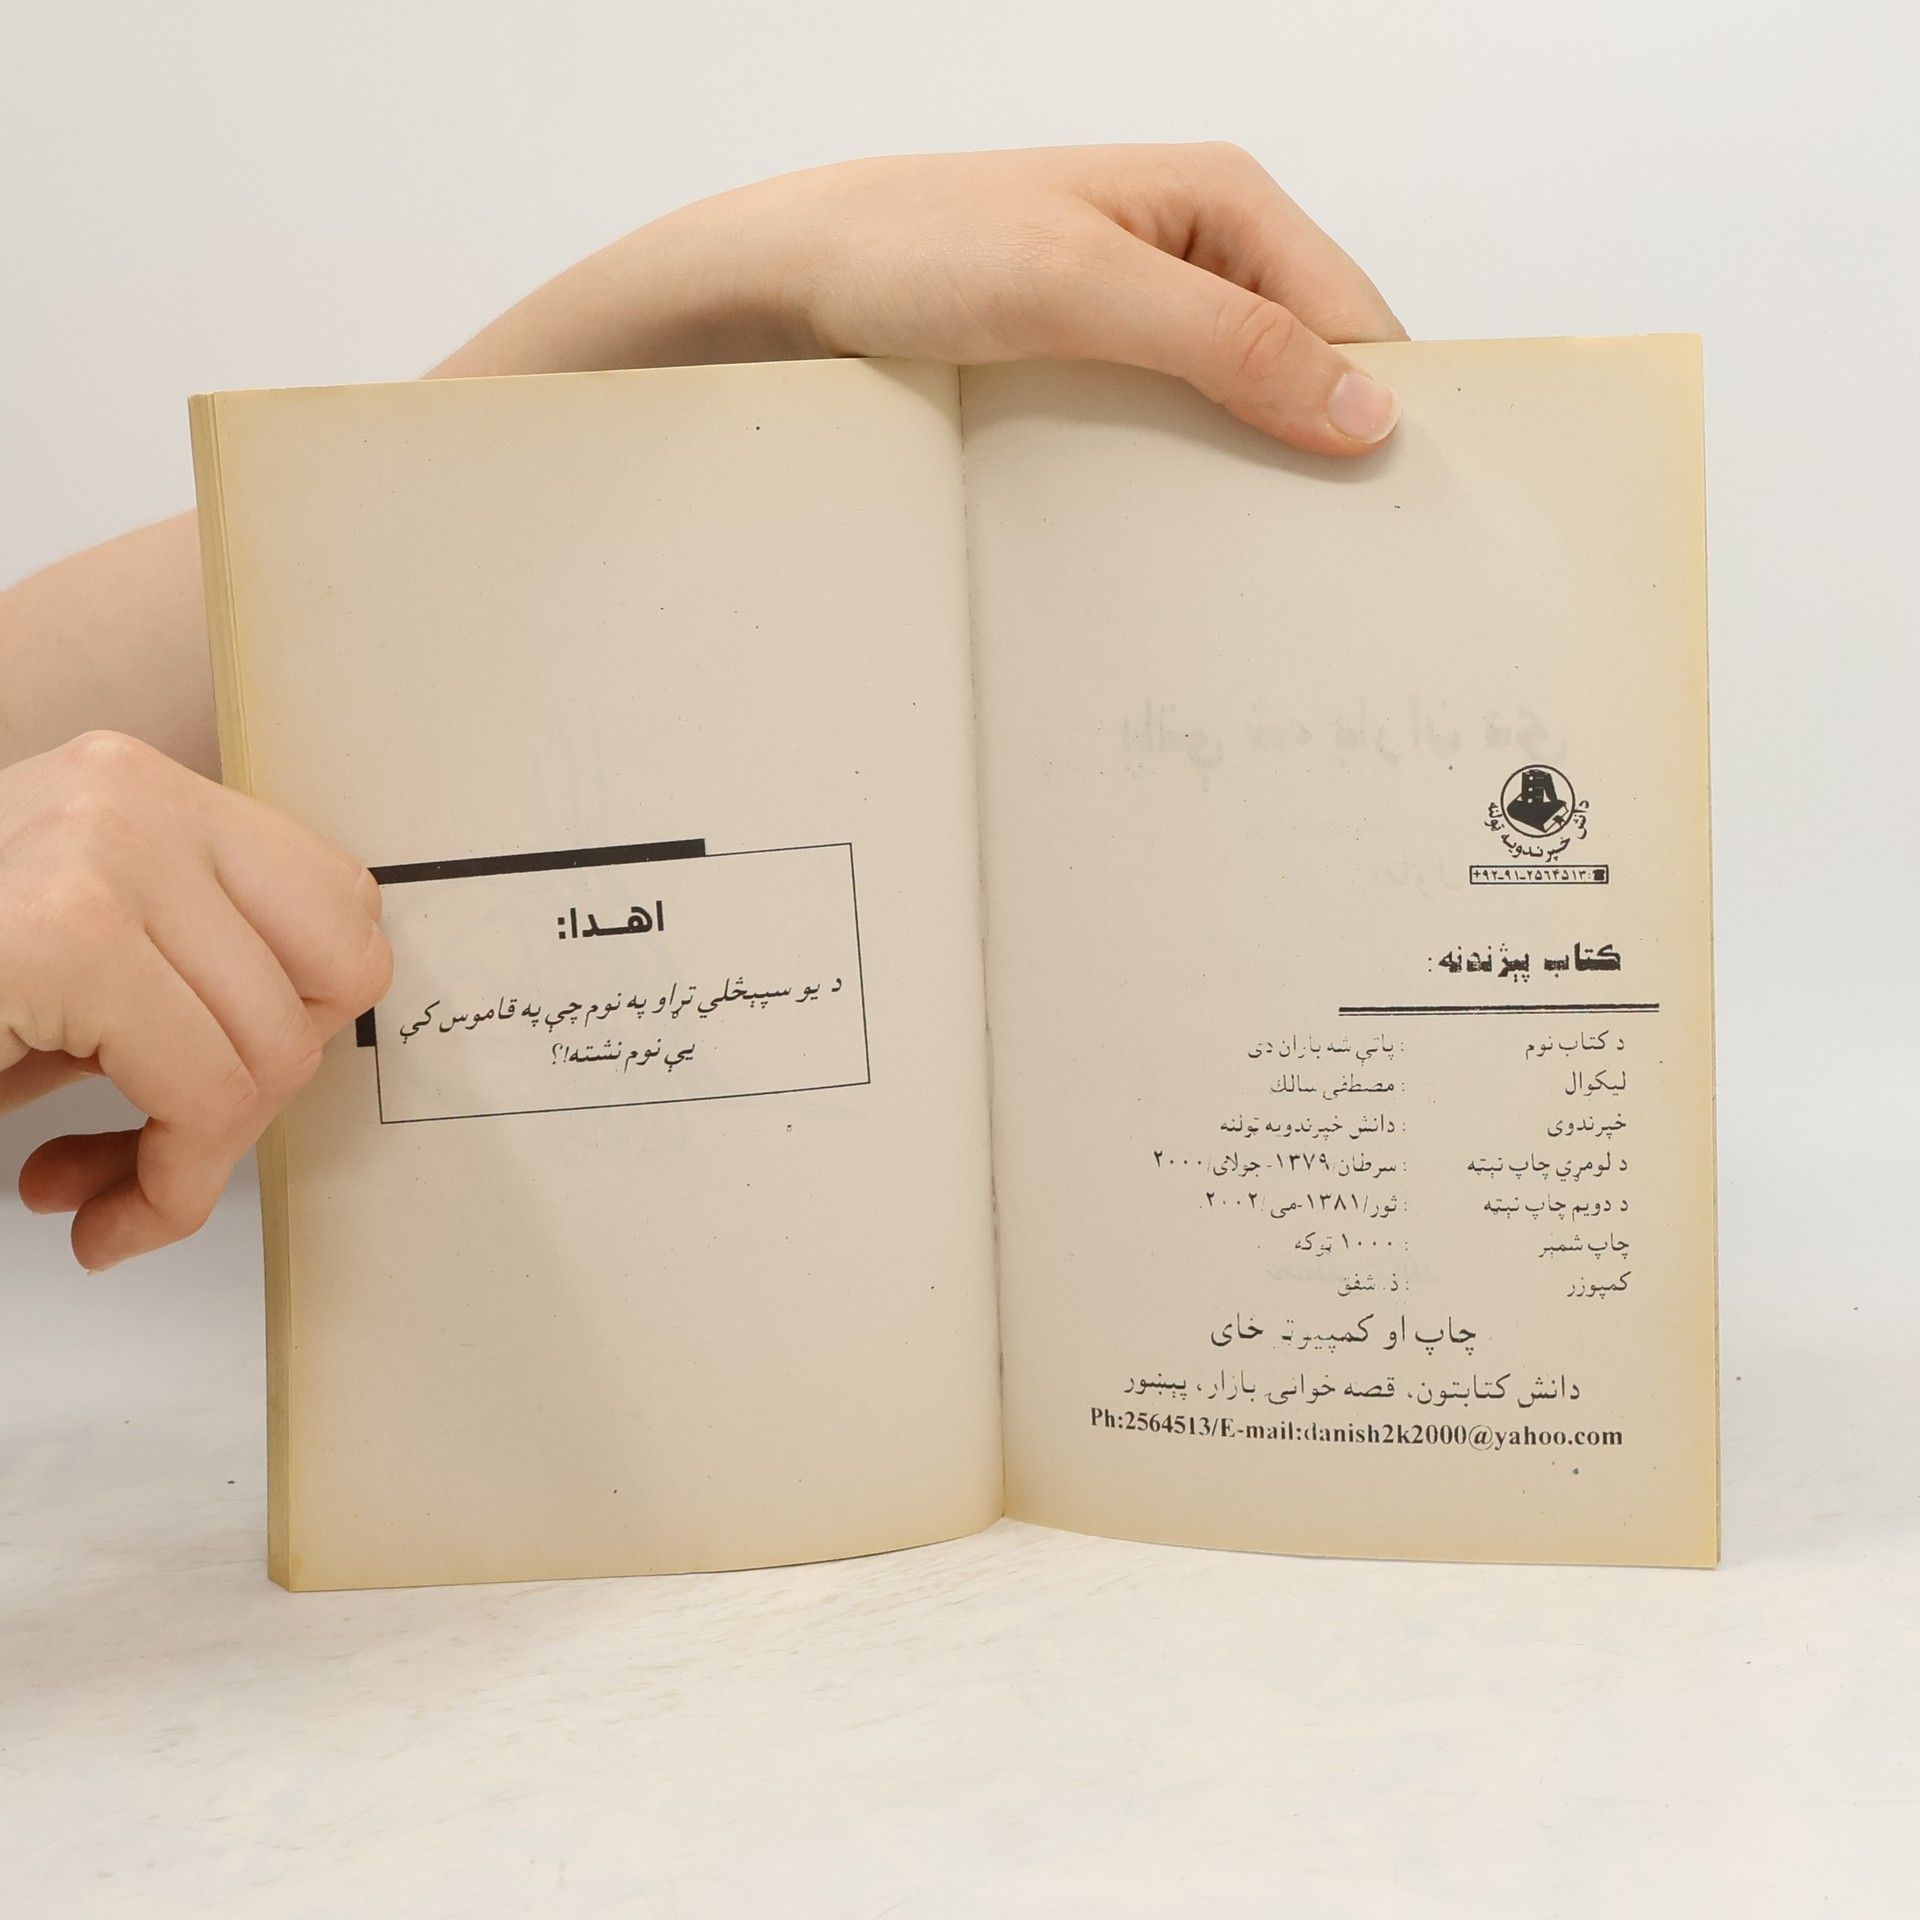 دانش خپرندويه ټولنه
+۹۲-۹۱-۲۵۶۴۵۱۳:☎
کتاب پېژندنه:
د کتاب نوم : پاتې شه باران دی
ليکوال : مصطفی سالك
خپرندوی : دانش خپرندويه ټولنه
د لومړي چاپ نېټه : سرطان/۱۳۷۹- جولای/۲۰۰۰
د دويم چاپ نېټه : ثور/۱۳۸۱-می/۲۰۰۲
چاپ شمېر : ۱۰۰۰ ټوکه
کمپوزر : ذ. شفق
چاپ او کمپيوټر ځای
دانش کتابتون، قصه خوانی بازار، پېښور
Ph:2564513/E-mail:danish2k2000@yahoo.com
اهـدا:
د يو سپېڅلي تړاو په نوم چې په قاموس کې
يې نوم نشته!؟